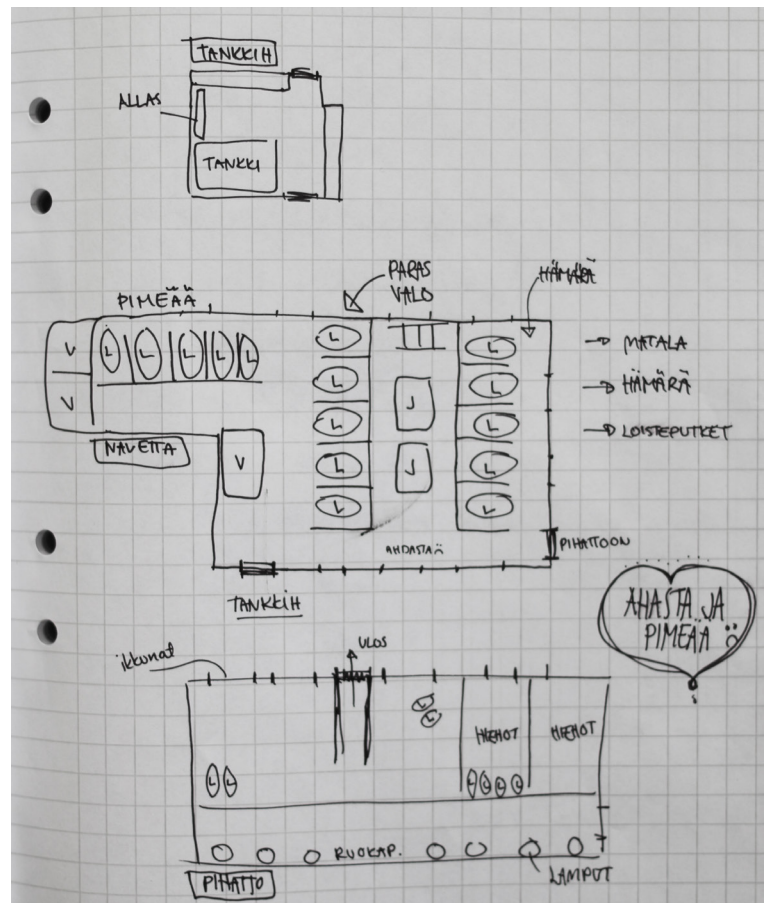 TANKKIH
ALLAS
TANKKI
PARAS
VALO
HÄMÄRÄ
PIMEÄÄ
V
V
L
L
L
L
L
L
L
L
L
L
J
J
L
L
L
L
L
→ MATALA
→ HÄMÄRÄ
→ LOISTEPUTKET
NAVETTA
V
AHDASTA
PIHATTOON
TANKKIH
AHASTA JA
PIMEÄÄ
ikkunat
ULOS
L
L
HIEHOT
HIEHOT
L L
L L L L
RUOKAP.
LAMPUT
PIHATTO